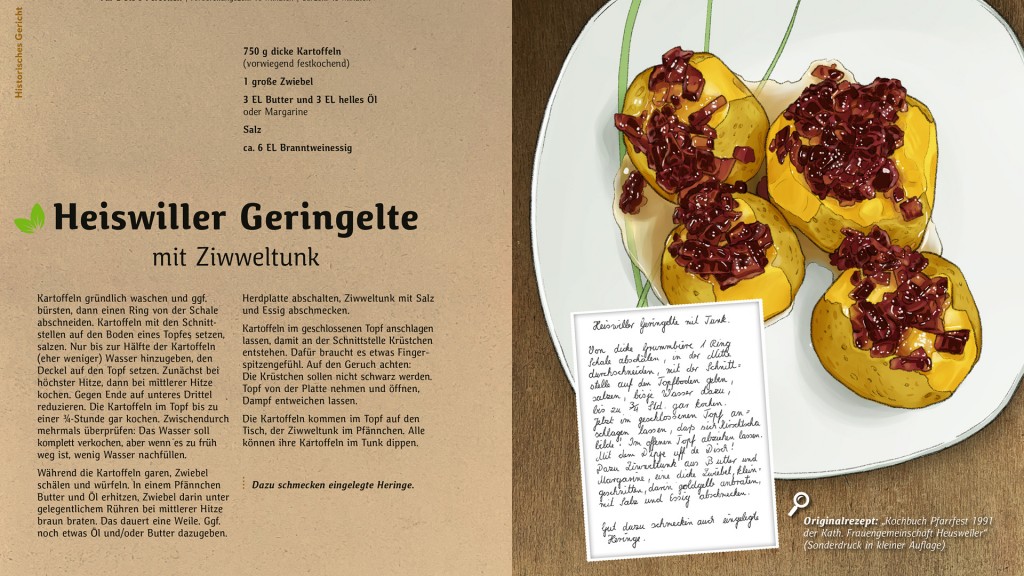 Historisches Gericht
750 g dicke Kartoffeln
(vorwiegend festkochend)
1 große Zwiebel
3 EL Butter und 3 EL helles Öl
oder Margarine
Salz
ca. 6 EL Branntweinessig
Heiswiller Geringelte
mit Ziwweltunk
Kartoffeln gründlich waschen und ggf.
bürsten, dann einen Ring von der Schale
abschneiden. Kartoffeln mit den Schnitt-
stellen auf den Boden eines Topfes setzen,
salzen. Nur bis zur Hälfte der Kartoffeln
(eher weniger) Wasser hinzugeben, den
Deckel auf den Topf setzen. Zunächst bei
höchster Hitze, dann bei mittlerer Hitze
kochen. Gegen Ende auf unteres Drittel
reduzieren. Die Kartoffeln im Topf bis zu
einer ¾-Stunde gar kochen. Zwischendurch
mehrmals überprüfen: Das Wasser soll
komplett verkochen, aber wenn es zu früh
weg ist, wenig Wasser nachfüllen.
Während die Kartoffeln garen, Zwiebel
schälen und würfeln. In einem Pfännchen
Butter und Öl erhitzen, Zwiebel darin unter
gelegentlichem Rühren bei mittlerer Hitze
braun braten. Das dauert eine Weile. Ggf.
noch etwas Öl und/oder Butter dazugeben.
Herdplatte abschalten, Ziwweltunk mit Salz
und Essig abschmecken.
Kartoffeln im geschlossenen Topf anschlagen
lassen, damit an der Schnittstelle Krüstchen
entstehen. Dafür braucht es etwas Finger-
spitzengefühl. Auf den Geruch achten:
Die Krüstchen sollen nicht schwarz werden.
Topf von der Platte nehmen und öffnen,
Dampf entweichen lassen.
Die Kartoffeln kommen im Topf auf den
Tisch, der Ziwweltunk im Pfännchen. Alle
können ihre Kartoffeln im Tunk dippen.
Dazu schmecken eingelegte Heringe.
Heiswiller Geringelte mit Tunk.
Von dicke Grummbiere 1 Ring
Schale abschälen, in der Mitte
durchschneiden, mit der Schnitt-
stelle auf den Topfboden geben,
salzen, bisje Wasser dazu,
bis zu ¾ Std. gar kochen.
Jetzt im geschlossenen Topf an-
schlagen lassen, daß sich Krüstscha
bilde! Im offenen Topf abziehen lassen.
Mit dem Dippe uff de Disch!
Dazu Ziwweltunk aus Butter und
Margarine, eine dicke Zwiebel, klein-
geschnitten, darin goldgelb anbraten,
mit Salz und Essig abschmecken.
Gut dazu schmecken auch eingelegte
Heringe.
Originalrezept: „Kochbuch Pfarrfest 1991
der Kath. Frauengemeinschaft Heusweiler“
(Sonderdruck in kleiner Auflage)